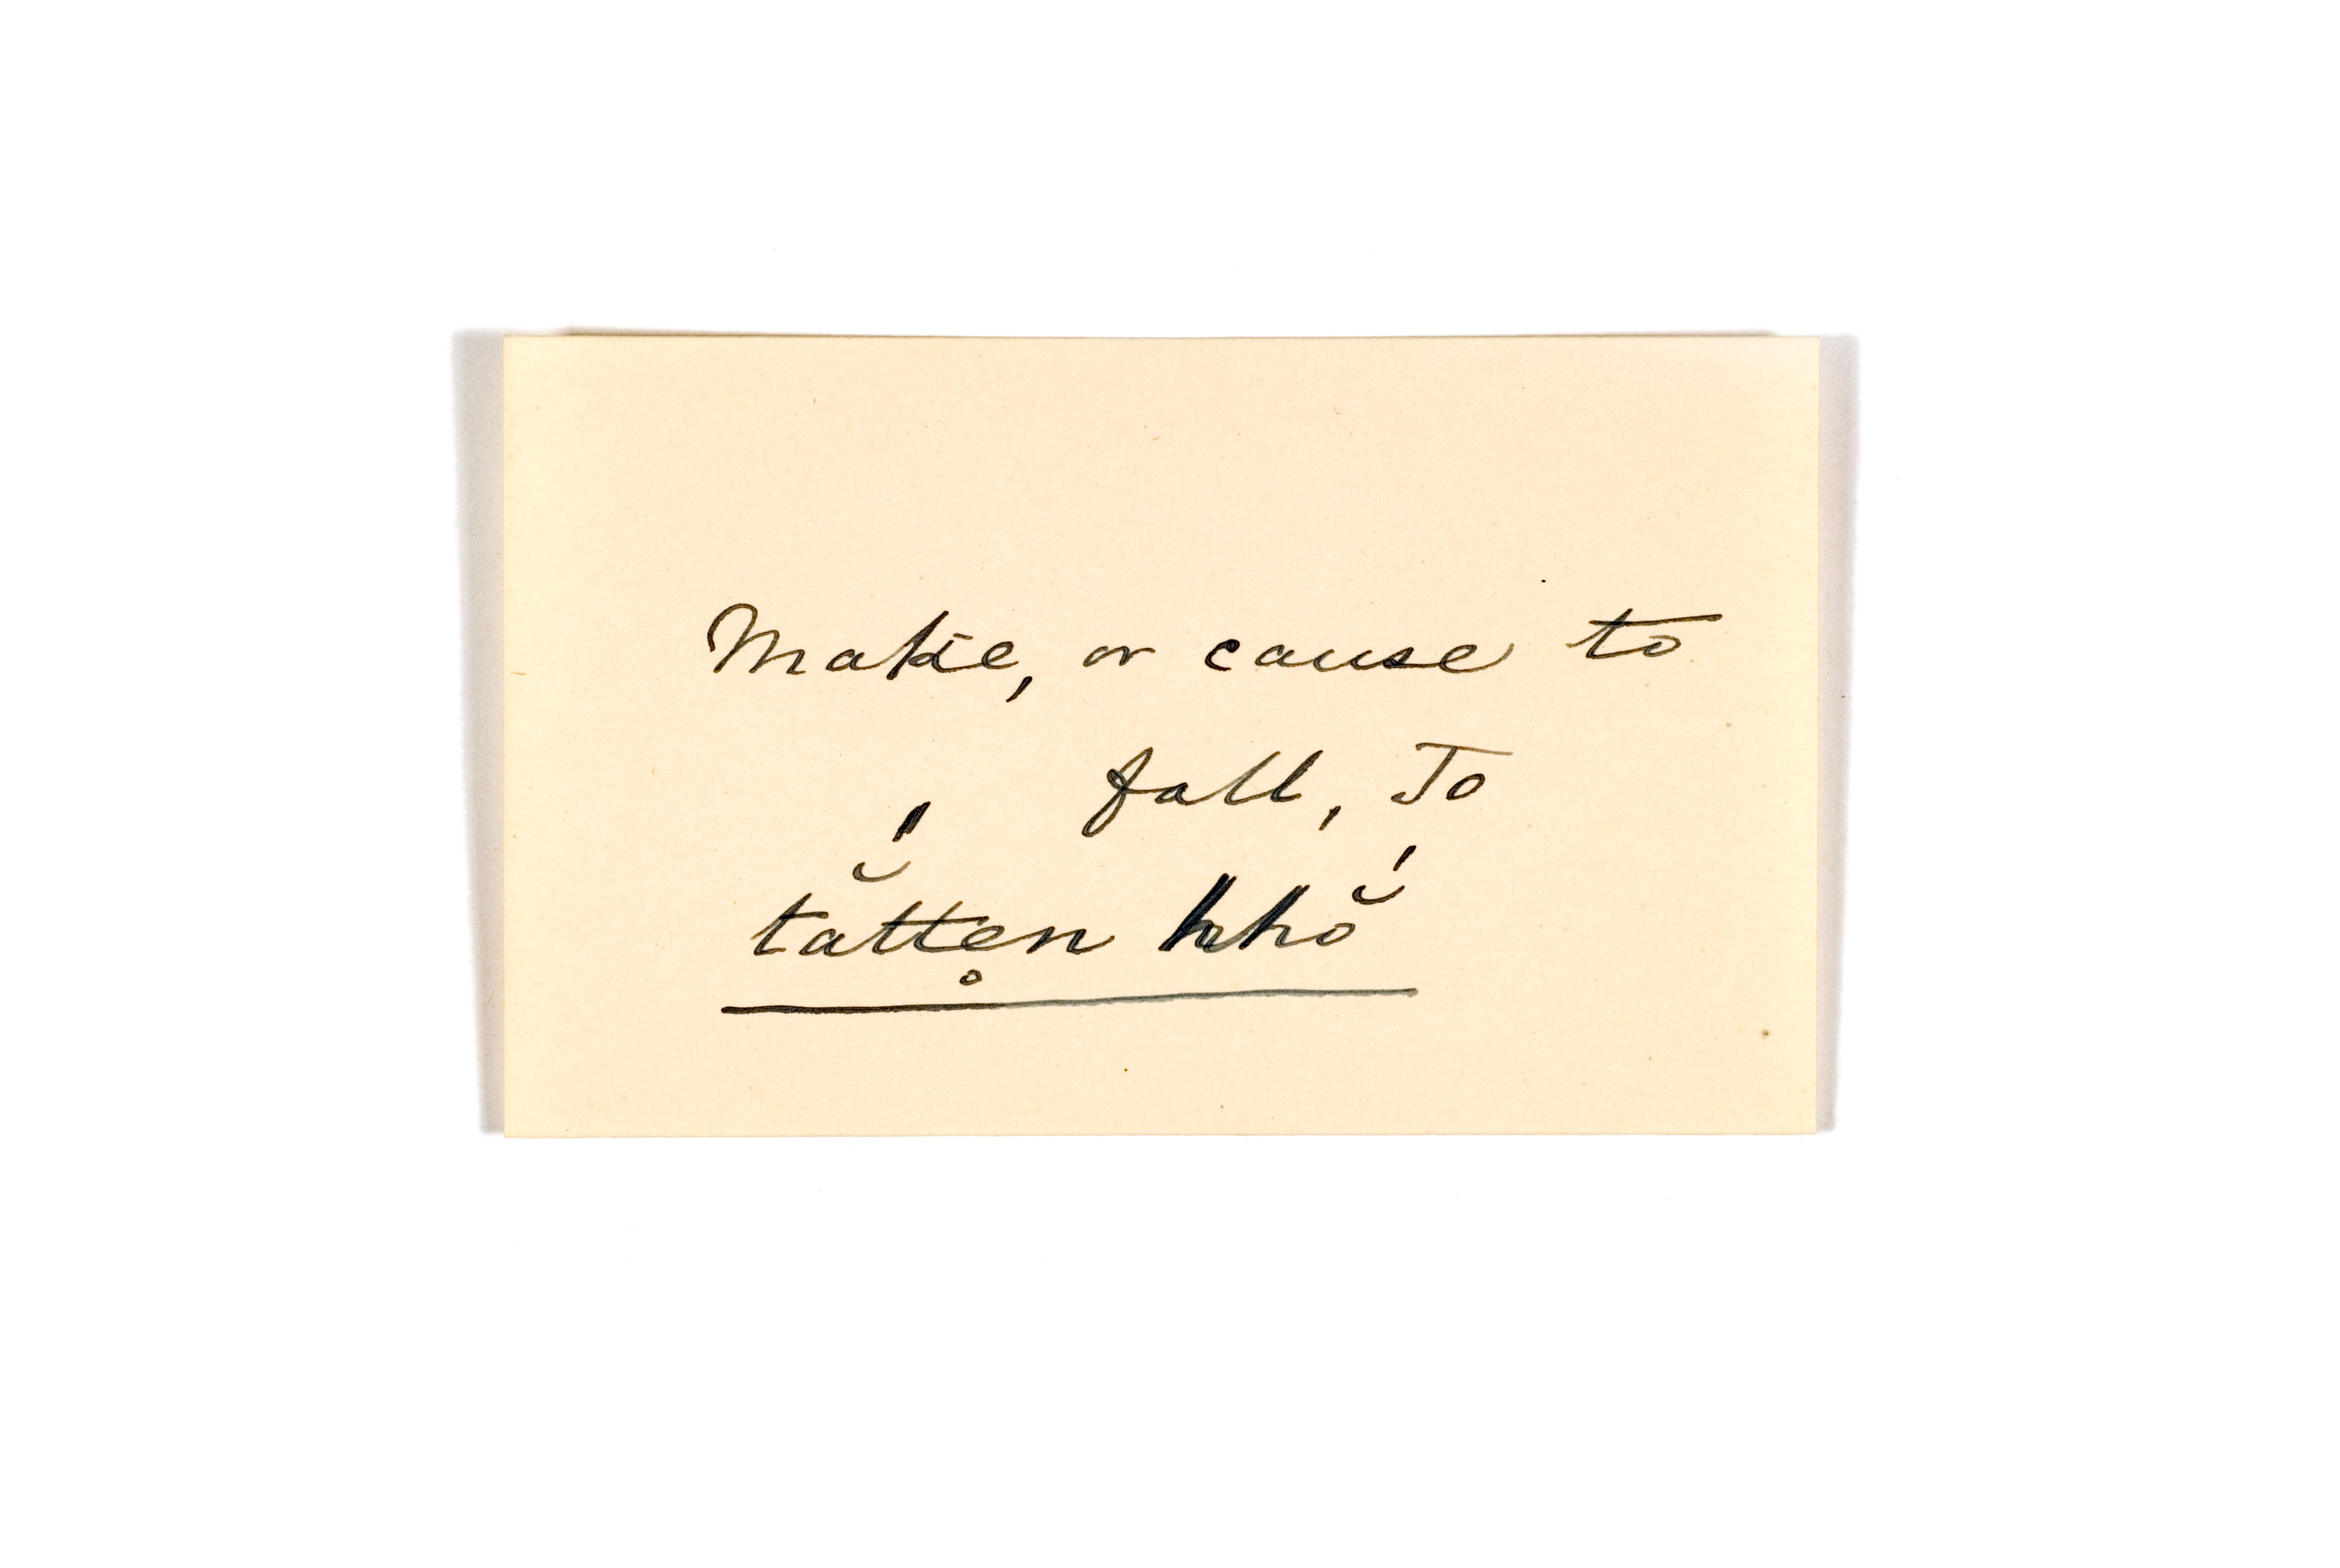 Make, or cause to
fall, To
tắtte̥n hhŏ́